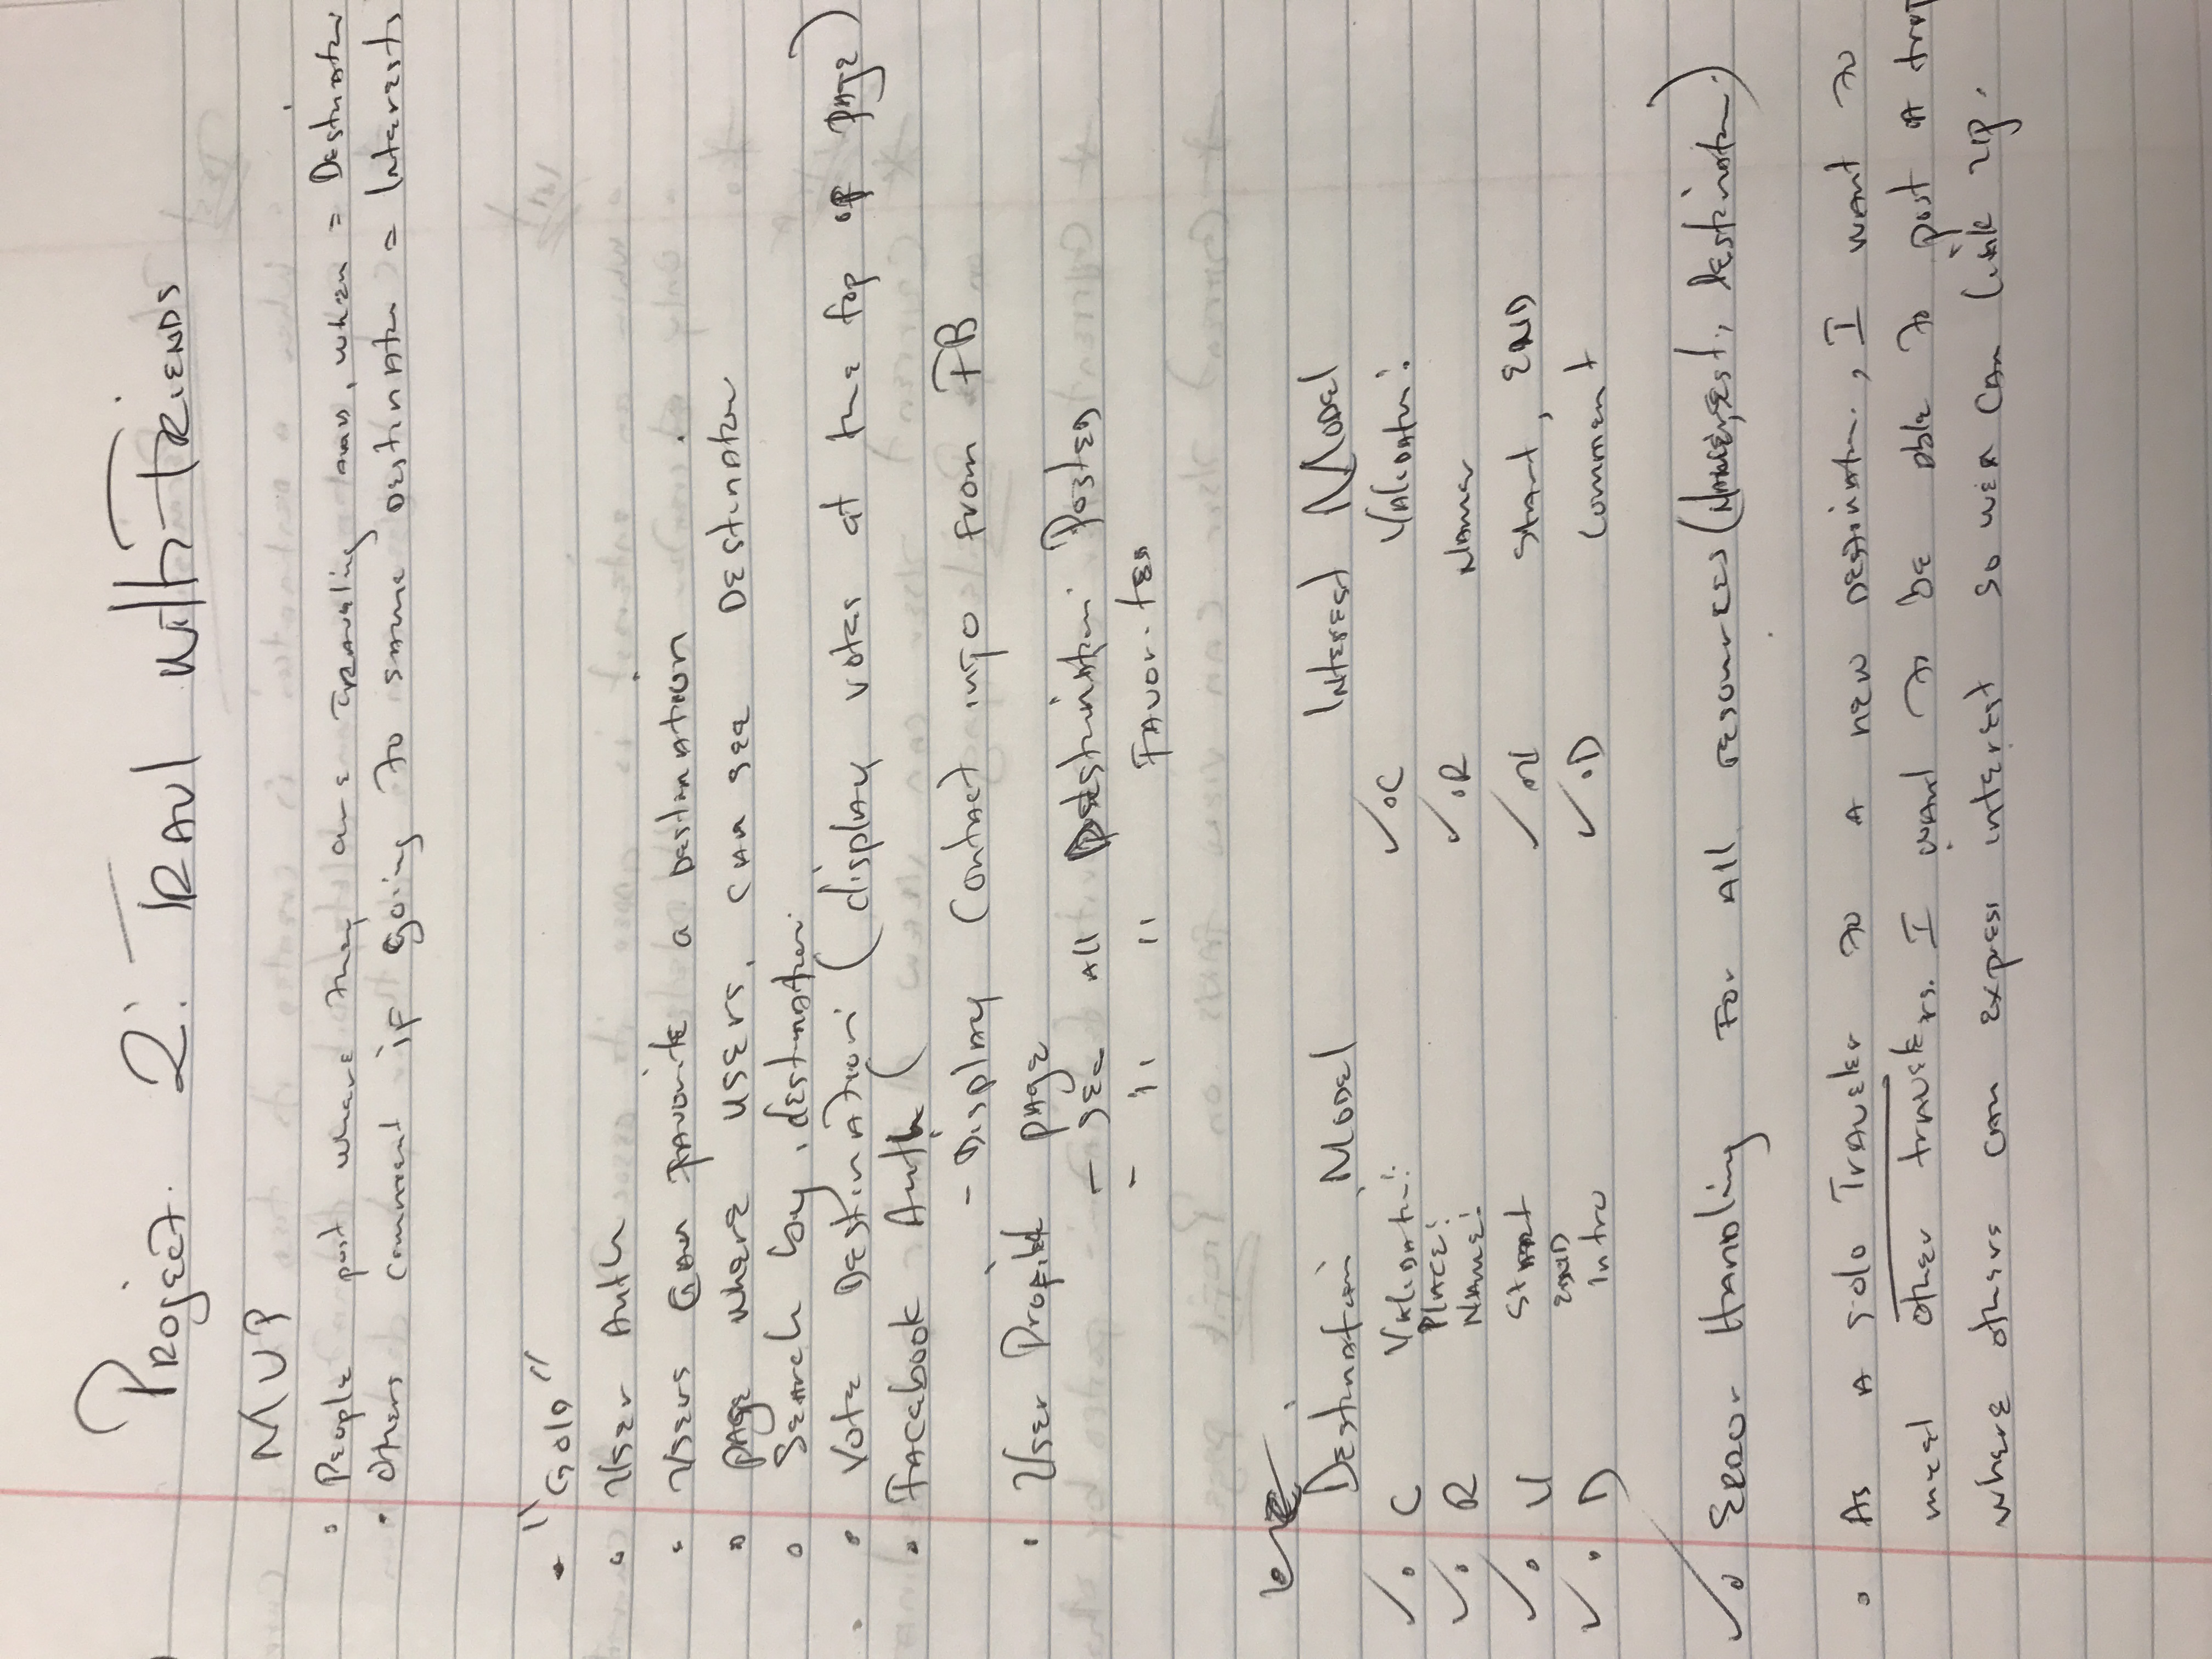 Project 2: Travl with Friends
MVP
• People post where they are Traveling and, when = Destination
• Others comment if going to same Destination = Interests
- "Gold"
• User Auth
• Users can favorite a Destination
• page where users, can see Destination
• Search by destination
• Vote Destination (display votes at the top of page)
• Facebook Auth (
- Display Contact info from FB
• User Profile page
- see all Destination Posted
- " " Favorites
Destination Model Interest Model
✓• C Validation: ✓•C Validation:
Place:
✓• R Name: ✓•R Name
✓• U Start ✓•U Start, END
END
✓• D Intro ✓•D Comment
✓• Error Handling For All resources (Interest, Destination)
• As A solo Traveler to A new Destination, I want to
meet other travelers. I want to be able to post A trip
where others can express interest so we can link up.